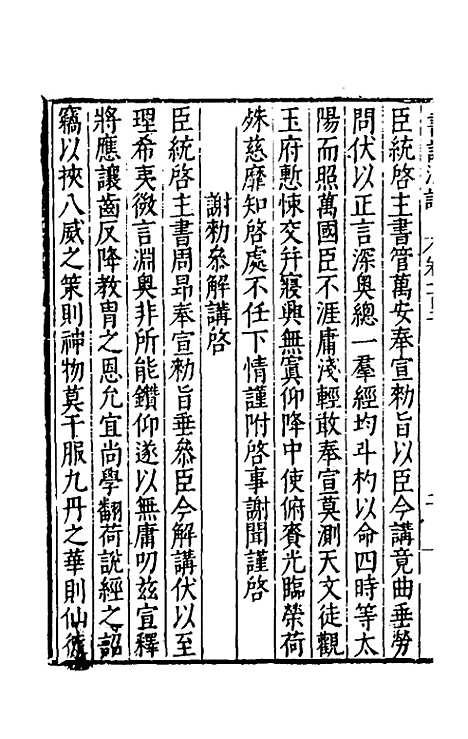 臣統啓主書管萬安奉宣勑旨以臣今講竟曲垂勞
問伏以正言深奥總一羣經均斗杓以命四時等太
陽而照萬國臣不涯庸淺輕敢奉宣莫測天文徒觀
玉府慙悚交并寢興無寘仰降中使俯賚光臨榮荷
殊慈靡知啓處不任下情謹附啓事謝聞謹啓
謝勑叅解講啓
臣統啓主書周昂奉宣勑旨垂叅臣今解講伏以至
理希夷微言淵奥非所能鑽仰遂以無庸叨茲宣釋
將應讓齒反降教胄之恩允宜尚學翻荷說經之詔
竊以挾八威之策則神物莫干服九丹之華則仙徒